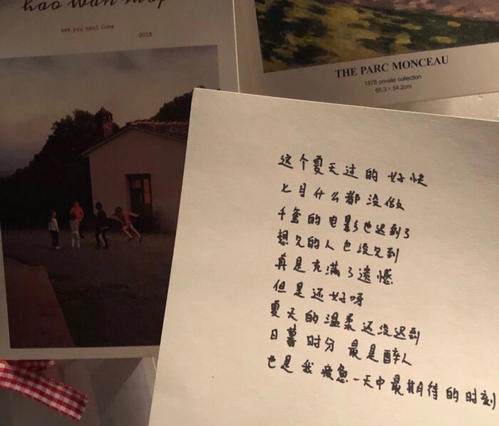 hao wan
see you next time
2018
THE PARC MONCEAU
1878 private collection
65.3 × 54.2cm
这个夏天过的好快
七月什么都没做
千玺的电影也迟到了
想见的人也没见到
真是充满了遗憾
但是还好呀
夏天的温柔还没迟到
日暮时分 最是醉人
也是我疲惫一天中最期待的时刻